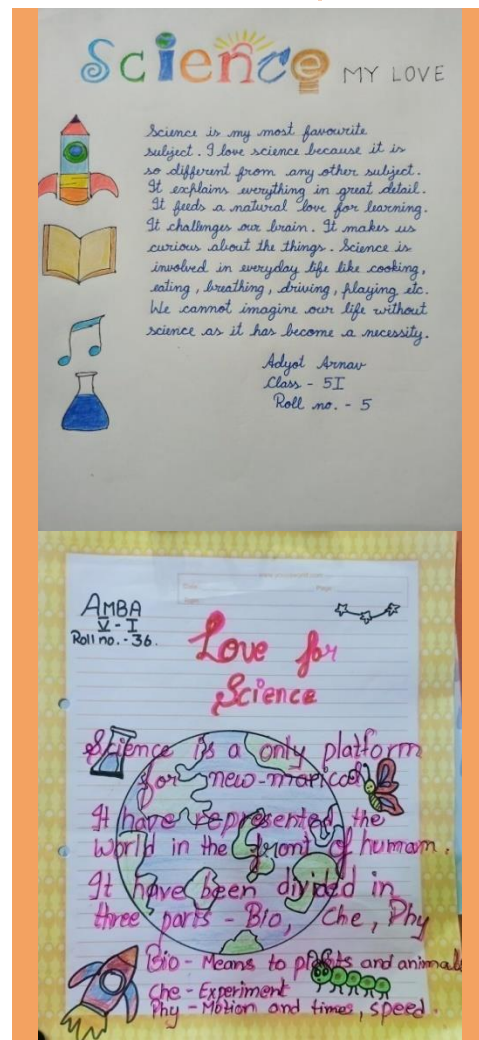 Science MY LOVE
Science is my most favourite
subject. I love science because it is
so different from any other subject.
It explains everything in great detail.
It feeds a natural love for learning.
It challenges our brain. It makes us
curious about the things. Science is
involved in everyday life like cooking,
eating, breathing, driving, playing etc.
We cannot imagine our life without
science as it has become a necessity.
Adyot Arnav
Class - 5I
Roll no. - 5
AMBA
V - I
Roll no. - 36.
Love for
Science
Science is a only platform
for new-marical
It have represented the
world in the front of humam.
It have been divided in
three parts - Bio, Che, Phy
Bio - Means to plants and animals
Che - Experiment
Phy - Motion and times, speed.